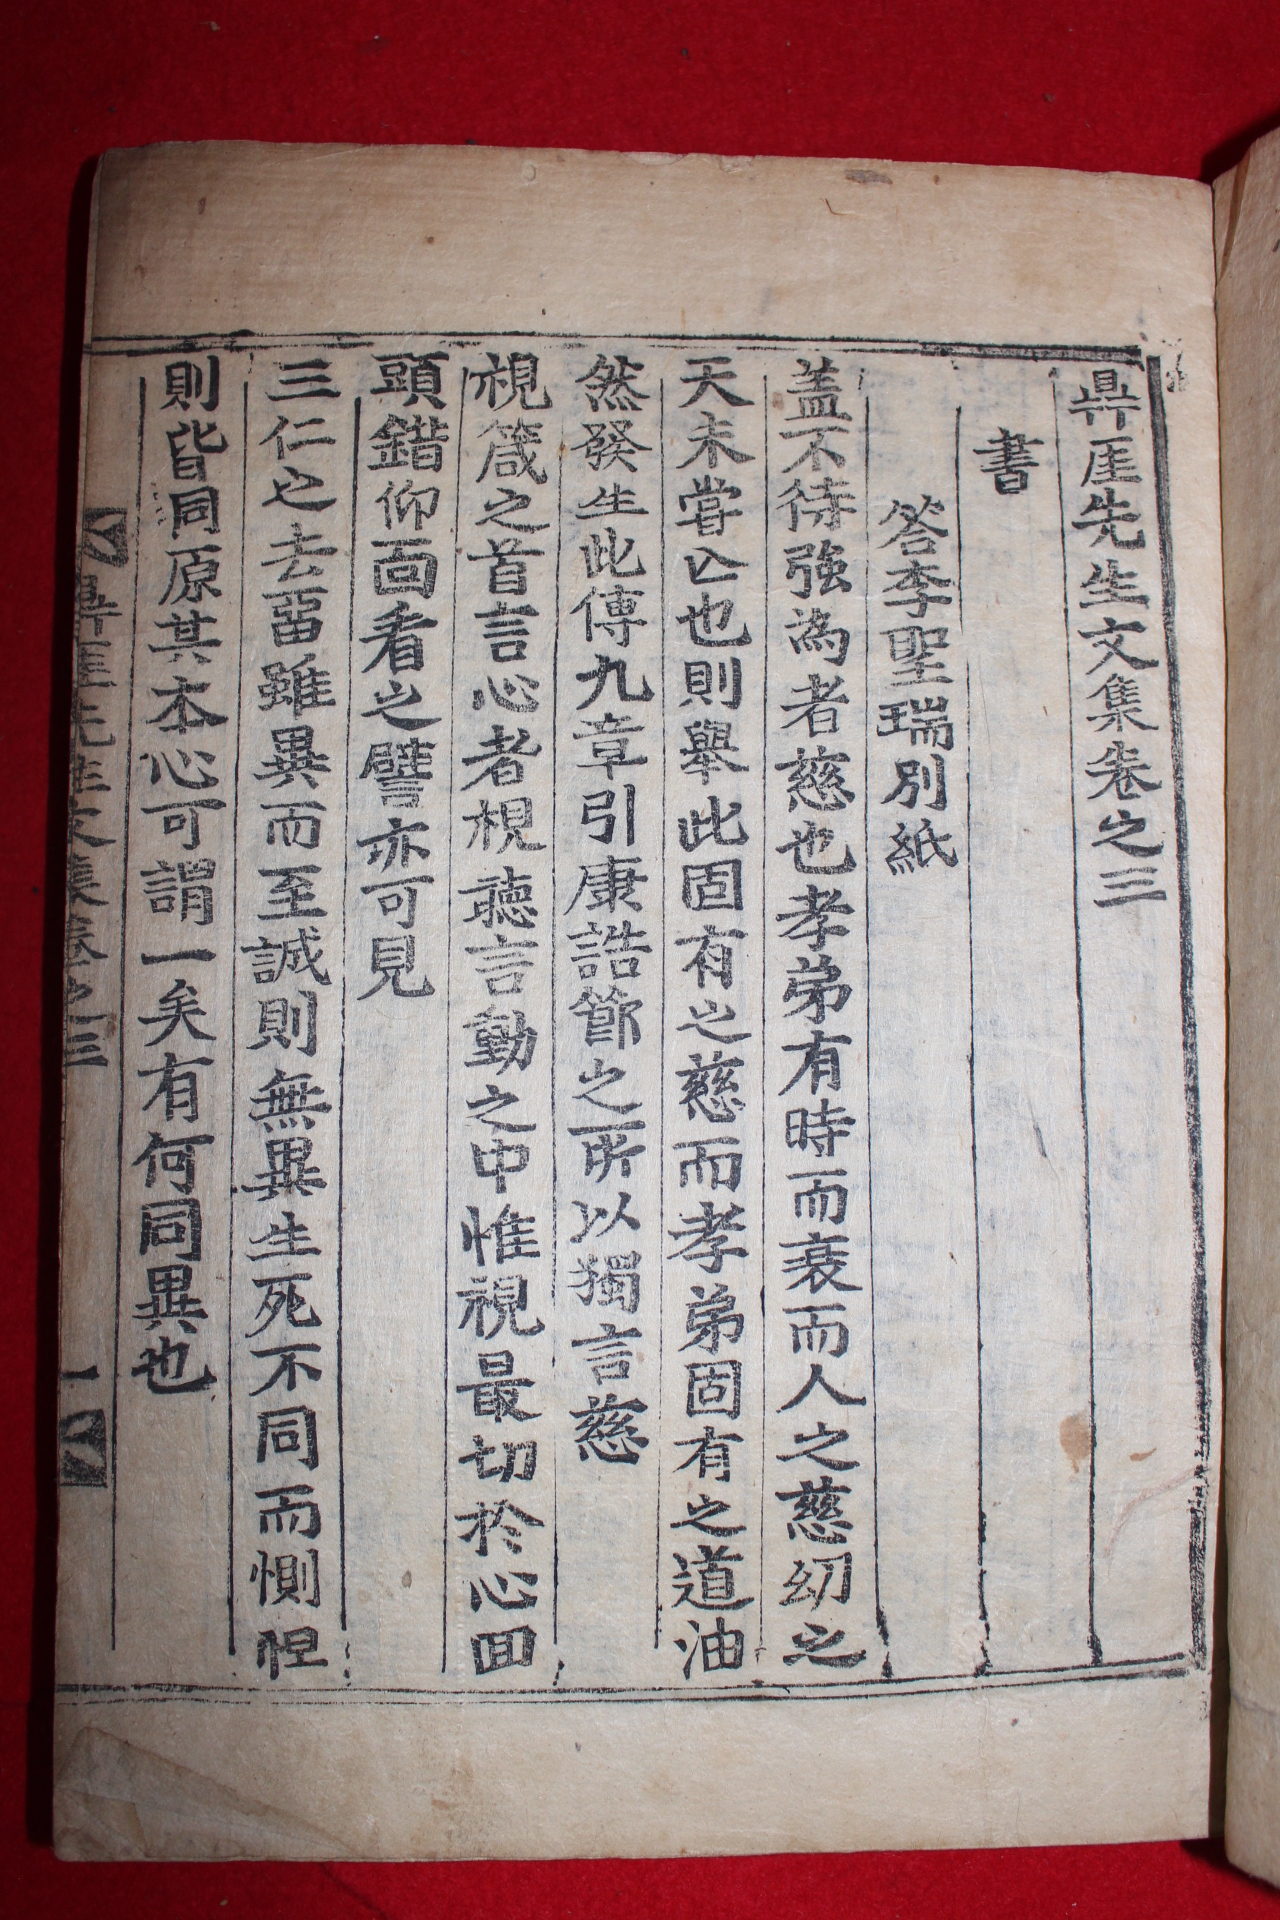 鼎厓先生文集卷之三
書
答李聖瑞別紙
盖不待強為者慈也孝弟有時而衰而人之慈幼之
天未嘗亡也則舉此固有之慈而孝弟固有之道油
然發生此傳九章引康誥節之所以獨言慈
視箴之首言心者視聽言動之中惟視最切於心回
頭錯仰面看之譬亦可見
三仁也去留雖異而至誠則無異生死不同而惻怛
則皆同原其本心可謂一矣有何同異也
鼎厓先生文集卷之三
一